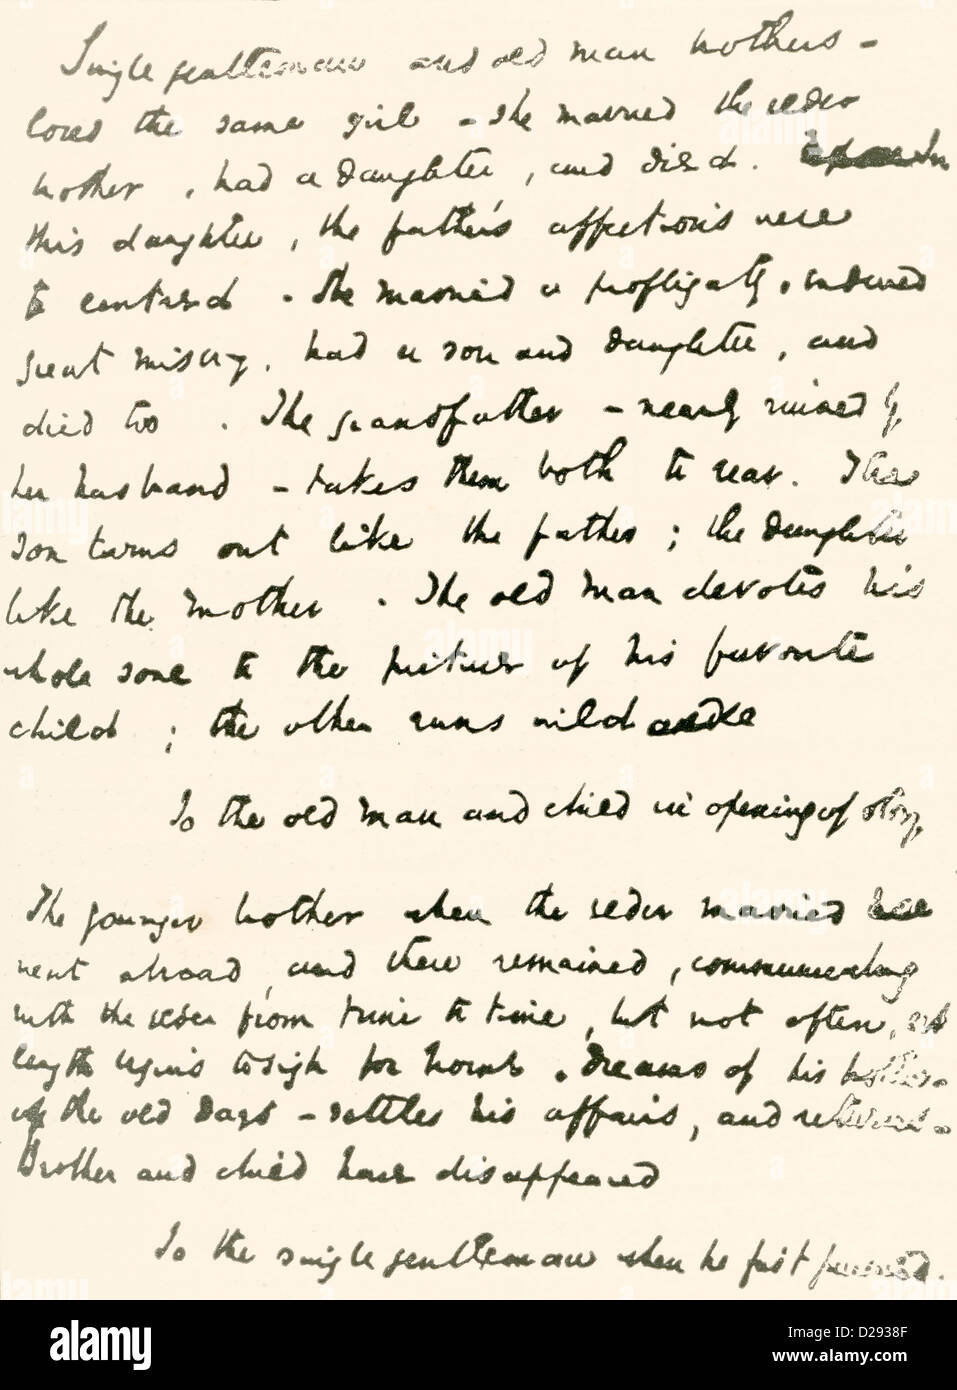 Single gentleman and old man brothers -
loved the same girl - she married the elder
brother, had a daughter, and died. In
this daughter, the father's affections were
centered. She married a profligate, endured
great misery, had a son and daughter, and
died too. The grandfather - nearly ruined by
her husband - takes them both to rear. The
son turns out like the father; the daughter
like the mother. The old man devotes his
whole soul to the picture of his favorite
child; the other runs wild
So the old man and child in opening of story.
The younger brother when the elder married
went abroad, and there remained, communicating
with the elder from time to time, but not often, at
length begins to sigh for home. Dreams of his brother -
of the old days - settles his affairs, and returns -
Brother and child have disappeared
So the single gentleman when he first
alamy
Image ID: D2938F
www.alamy.com